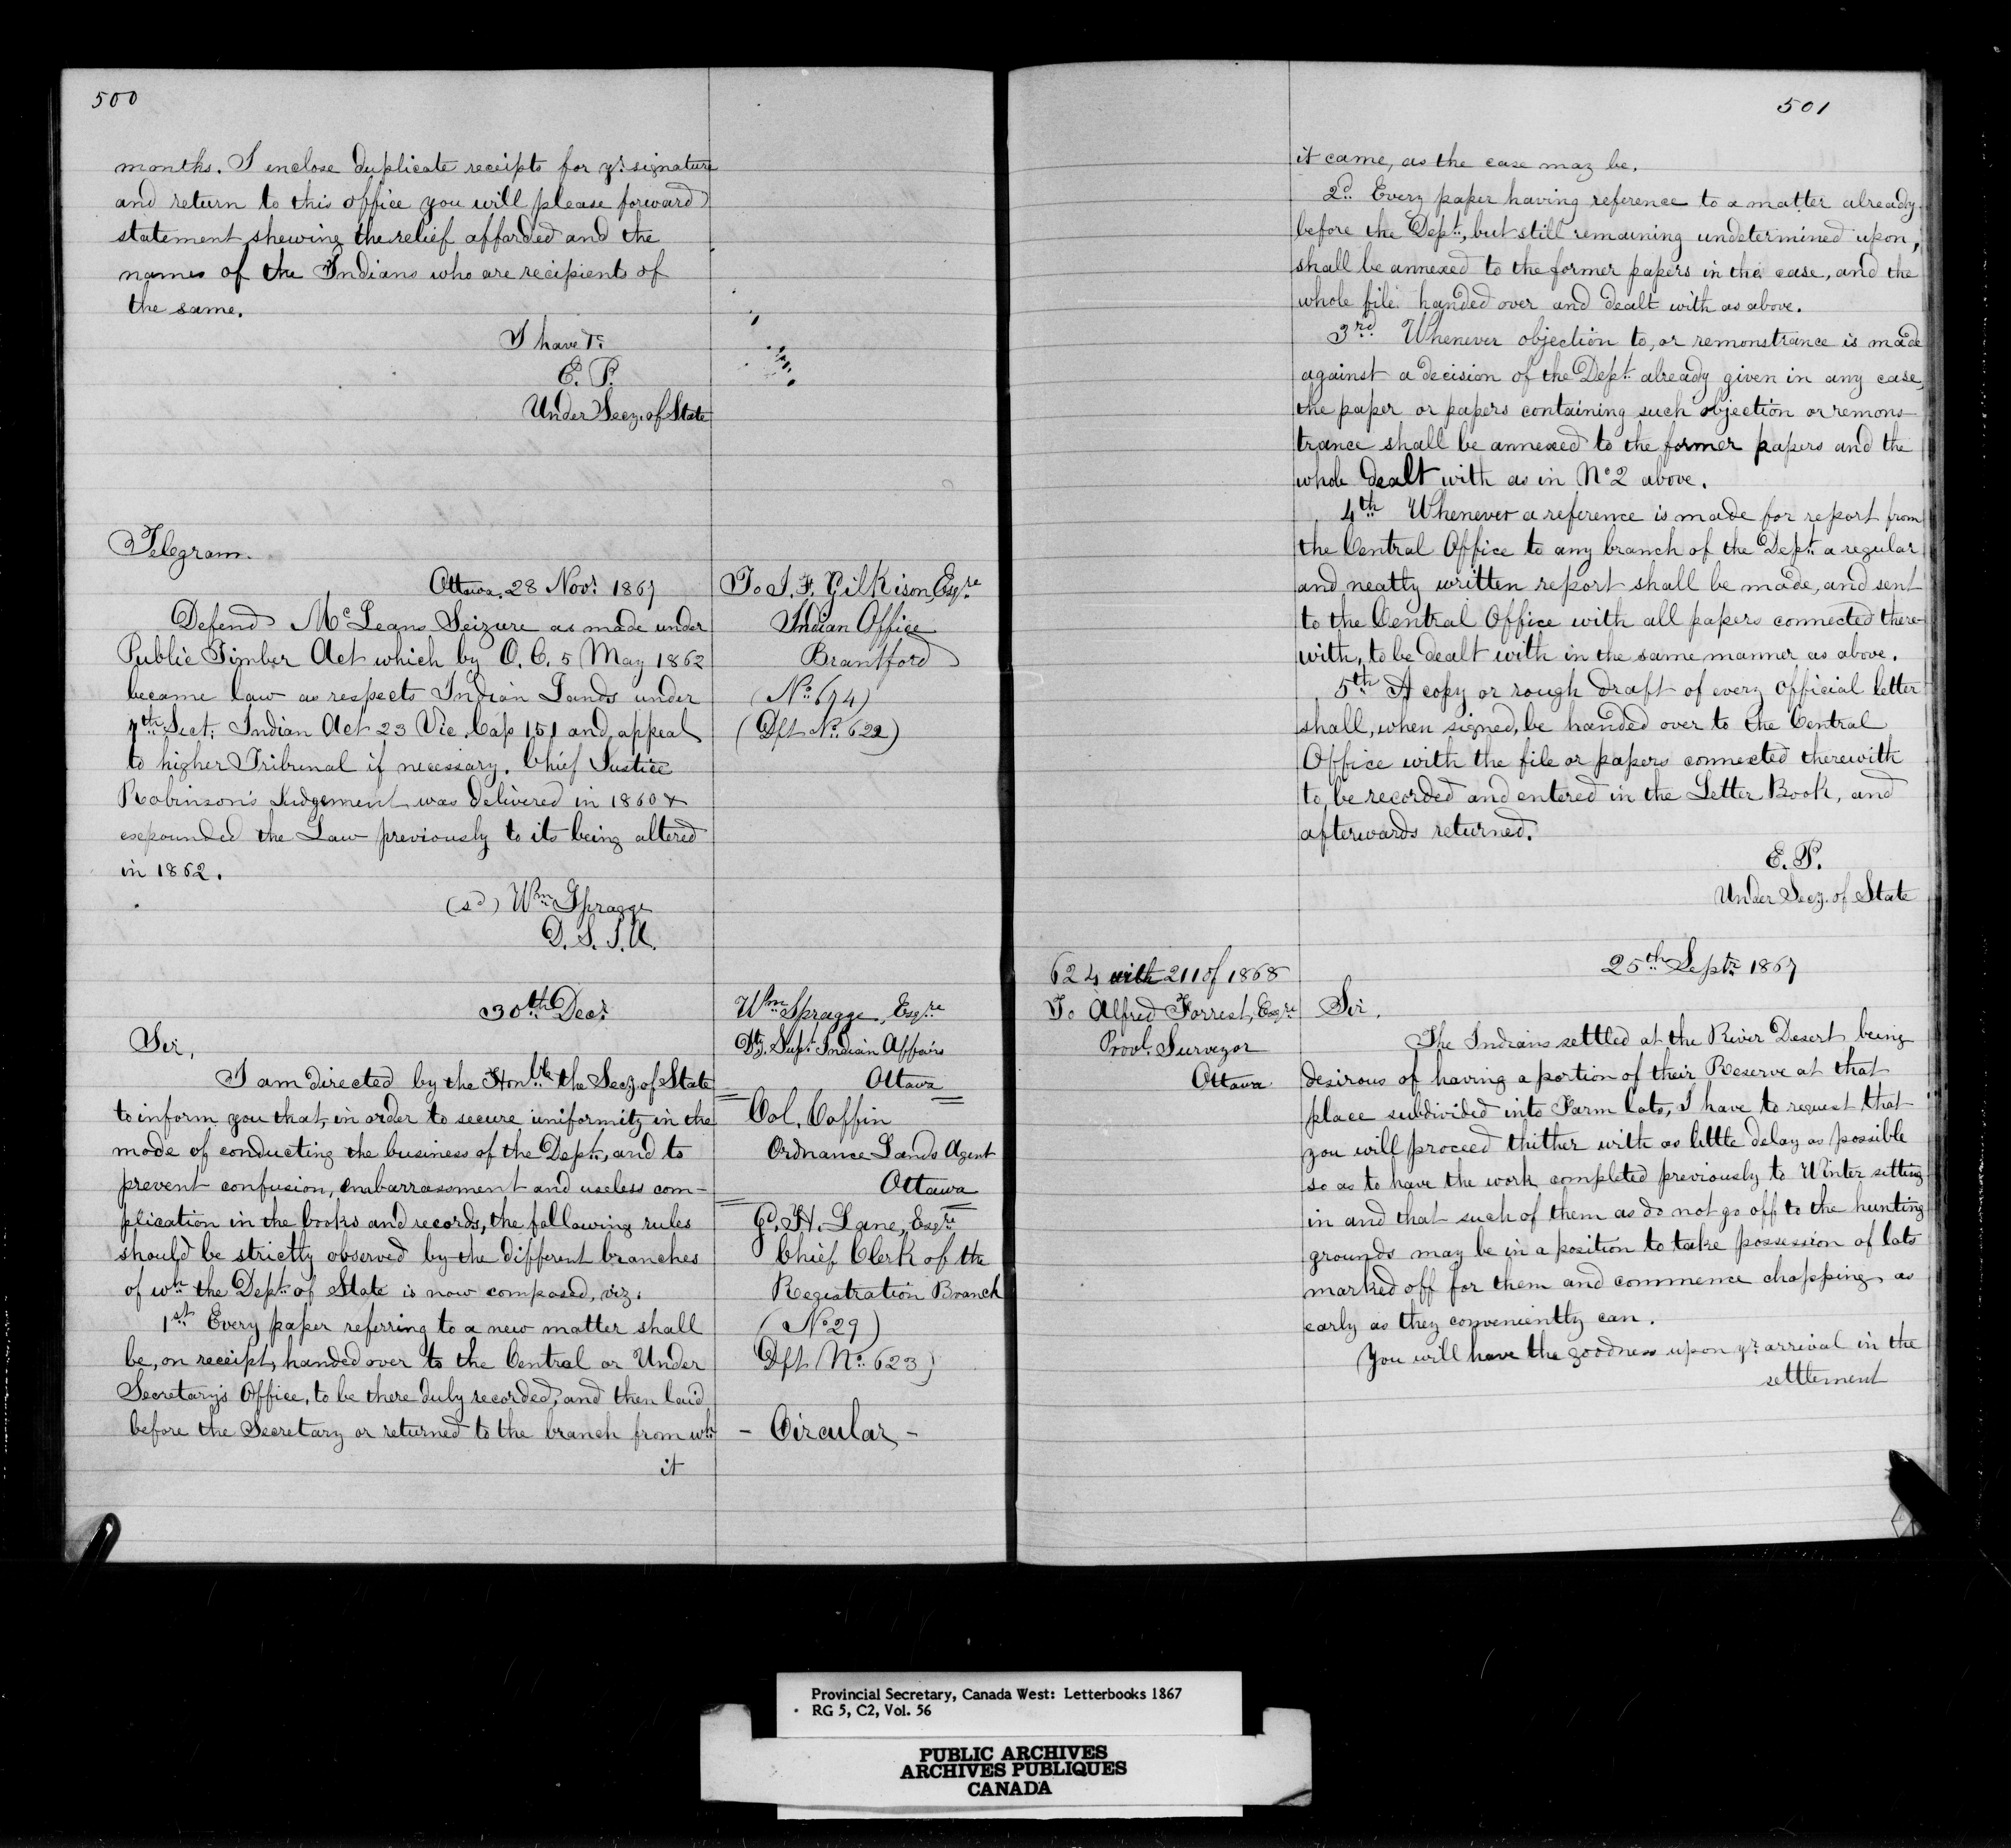 500
months. I enclose duplicate receipts for yr. signature
and return to this office you will please forward
statement shewing the relief afforded and the
names of the Indians who are recipients of
the same.
I have &c
E. P.
Under Secy. of State
Telegram.
Ottawa, 28 Novr. 1867
Defend McLeans Seizure as made under
Public Timber Act which by O. C. 5 May 1862
became law as respects Indian Lands under
7th Sect: Indian Act 23 Vic. Cap 151 and appeal
to higher Tribunal if necessary. Chief Justice
Robinson's Judgement was delivered in 1860 &
expounded the Law previously to its being altered
in 1862.
(sd) Wm Spragge
D. S. I. A.
To J. T. Gilkison, Esqre
Indian Office
Brantford
(No. 674)
(Dft No. 622)
30th Decr.
Sir,
I am directed by the Honble the Secy. of State
to inform you that, in order to secure uniformity in the
mode of conducting the business of the Dept., and to
prevent confusion, embarrassment and useless com-
plication in the books and records, the following rules
should be strictly observed by the different branches
of wh the Dept. of State is now composed, viz.
1st Every paper referring to a new matter shall
be, on receipt, handed over to the Central or Under
Secretary's Office, to be there duly recorded, and then laid
before the Secretary or returned to the branch from wh
it
Wm Spragge, Esqre
Dy. Supt Indian Affairs
Ottawa
Col. Coffin
Ordnance Lands Agent
Ottawa
G. H. Lane, Esqre
Chief Clerk of the
Registration Branch
(No 29)
Dft No. 623)
- Circular -
501
it came, as the case may be.
2d. Every paper having reference to a matter already
before the Dept., but still remaining undetermined upon,
shall be annexed to the former papers in the case, and the
whole file handed over and dealt with as above.
3rd Whenever objection to, or remonstrance is made
against a decision of the Dept. already given in any case,
the paper or papers containing such objection or remons-
trance shall be annexed to the former papers and the
whole dealt with as in No 2 above.
4th Whenever a reference is made for report from
the Central Office to any branch of the Dept. a regular
and neatly written report shall be made, and sent
to the Central Office with all papers connected there-
with, to be dealt with in the same manner as above.
5th A copy or rough draft of every official letter
shall, when signed, be handed over to the Central
Office with the file or papers connected therewith
to be recorded and entered in the Letter Book, and
afterwards returned.
E. P.
Under Secy. of State
624 with 211 of 1868
To Alfred Forrest, Esqre
Provl. Surveyor
Ottawa
25th Septr 1867
Sir,
The Indians settled at the River Desert being
desirous of having a portion of their Reserve at that
place subdivided into Farm lots, I have to request that
you will proceed thither with as little delay as possible
so as to have the work completed previously to Winter setting
in and that such of them as do not go off to the hunting
grounds may be in a position to take possession of lots
marked off for them and commence chopping as
early as they conveniently can.
You will have the goodness upon yr. arrival in the
settlement
Provincial Secretary, Canada West: Letterbooks 1867
RG 5, C2, Vol. 56
PUBLIC ARCHIVES
ARCHIVES PUBLIQUES
CANADA